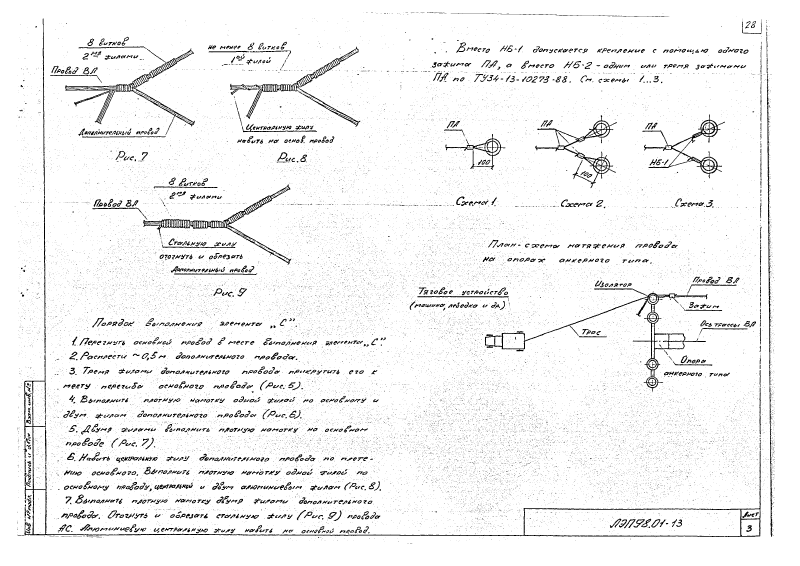 28
8 витков
2мя жилами
Провод ВЛ
Дополнительный провод
Рис. 7
не менее 8 витков
1ой жилой
Центральную жилу
навить на основ. провод
Рис. 8
8 витков
2мя жилами
Провод ВЛ
Стальную жилу
отогнуть и обрезать
Дополнительный провод
Рис. 9
Порядок выполнения элемента „С"
1. Перегнуть основной провод в месте выполнения элемента „С"
2. Расплести ~0,5 м дополнительного провода.
3. Тремя жилами дополнительного провода прикрутить его к
месту перегиба основного провода (Рис. 5).
4. Выполнить плотную намотку одной жилой по основному и
двум жилам дополнительного провода (Рис. 6).
5. Двумя жилами выполнить плотную намотку на основном
проводе (Рис. 7).
6. Навить центральную жилу дополнительного провода по плете-
нию основного. Выполнить плотную намотку одной жилой по
основному проводу, центральной и двум алюминиевым жилам (Рис. 8).
7. Выполнить плотную намотку двумя жилами дополнительного
провода. Отогнуть и обрезать стальную жилу (Рис. 9) провода
АС. Алюминиевую центральную жилу навить на основной провод.
Вместо НБ-1 допускается крепление с помощью одного
зажима ПА, а вместо НБ-2 - одним или тремя зажимами
ПА по ТУ34-13-10273-88. См. схемы 1...3.
ПА
100
Схема 1.
ПА
100
Схема 2.
ПА
НБ-1
Схема 3.
План-схема натяжения провода
на опорах анкерного типа.
Тяговое устройство
(машина, лебедка и др.)
Изолятор
Провод ВЛ
Зажим
Трос
Ось трассы ВЛ
Опора
анкерного типа
Взам. инв. №
Подпись и дата
Инв. № подл.
ЛЭП98.01-13
Лист
3